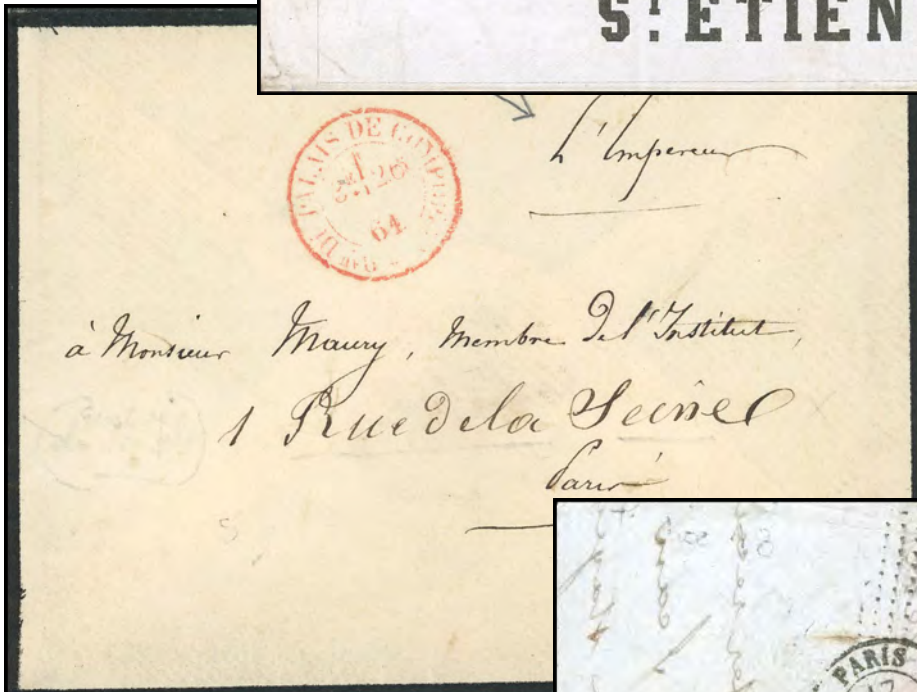 St ETIEN
L'Empereur
Bau DU PALAIS DE COMPIEGNE
26
64
à Monsieur Maury, Membre De l'Institut,
1 Rue de la Seine
Paris
PARIS